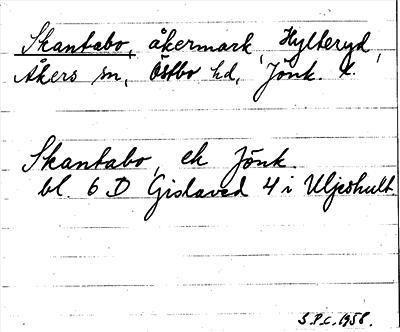 Skantabo, åkermark, Hylteryd,
Åkers sn, Östbo hd, Jönk. l.
Skantabo, ek Jönk.
bl. 6 D Gislaved 4 i Uljeshult.
S.P.C. 1958.